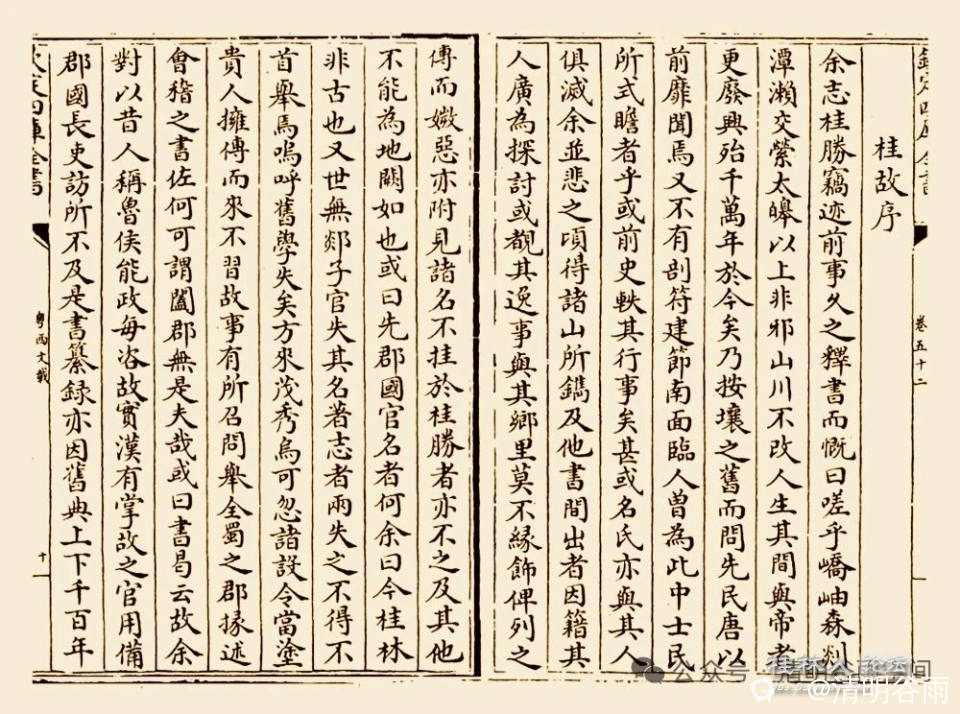 桂故序
余志桂勝竊迹前事久之釋書而慨曰嗟乎嶠岫森剡
潭瀨交縈太皞以上非邪山川不改人生其間與帝者
更廢興殆千萬年於今矣乃按壤之舊而問先民唐以
前靡聞焉又不有剖符建節南面臨人曾為此中士民
所式瞻者乎或前史軼其行事矣甚或名氏亦與其人
俱滅余並悲之頃得諸山所鐫及他書間出者因籍其
人廣為探討或覩其逸事與其鄉里莫不緣飾俾列之
卷五十二
傳而媺惡亦附見諸名不挂於桂勝者亦不之及其他
不能為地闕如也或曰先郡國官名者何余曰今桂林
非古也又世無郯子官失其名著志者兩失之不得不
首舉焉嗚呼舊學失矣方來茂秀烏可忽諸設令當塗
貴人擁傳而來不習故事有所召問舉全蜀之郡掾述
會稽之書佐何可謂闔郡無是夫哉或曰書曷云故余
對以昔人稱魯侯能政每咨故實漢有掌故之官用備
郡國長吏訪所不及是書纂録亦因舊典上下千百年
粤西文載
十
公众号
@清明谷雨